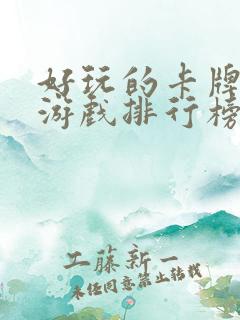 好玩的卡牌
游戏排行榜
工藤新一
未经同意禁止转载